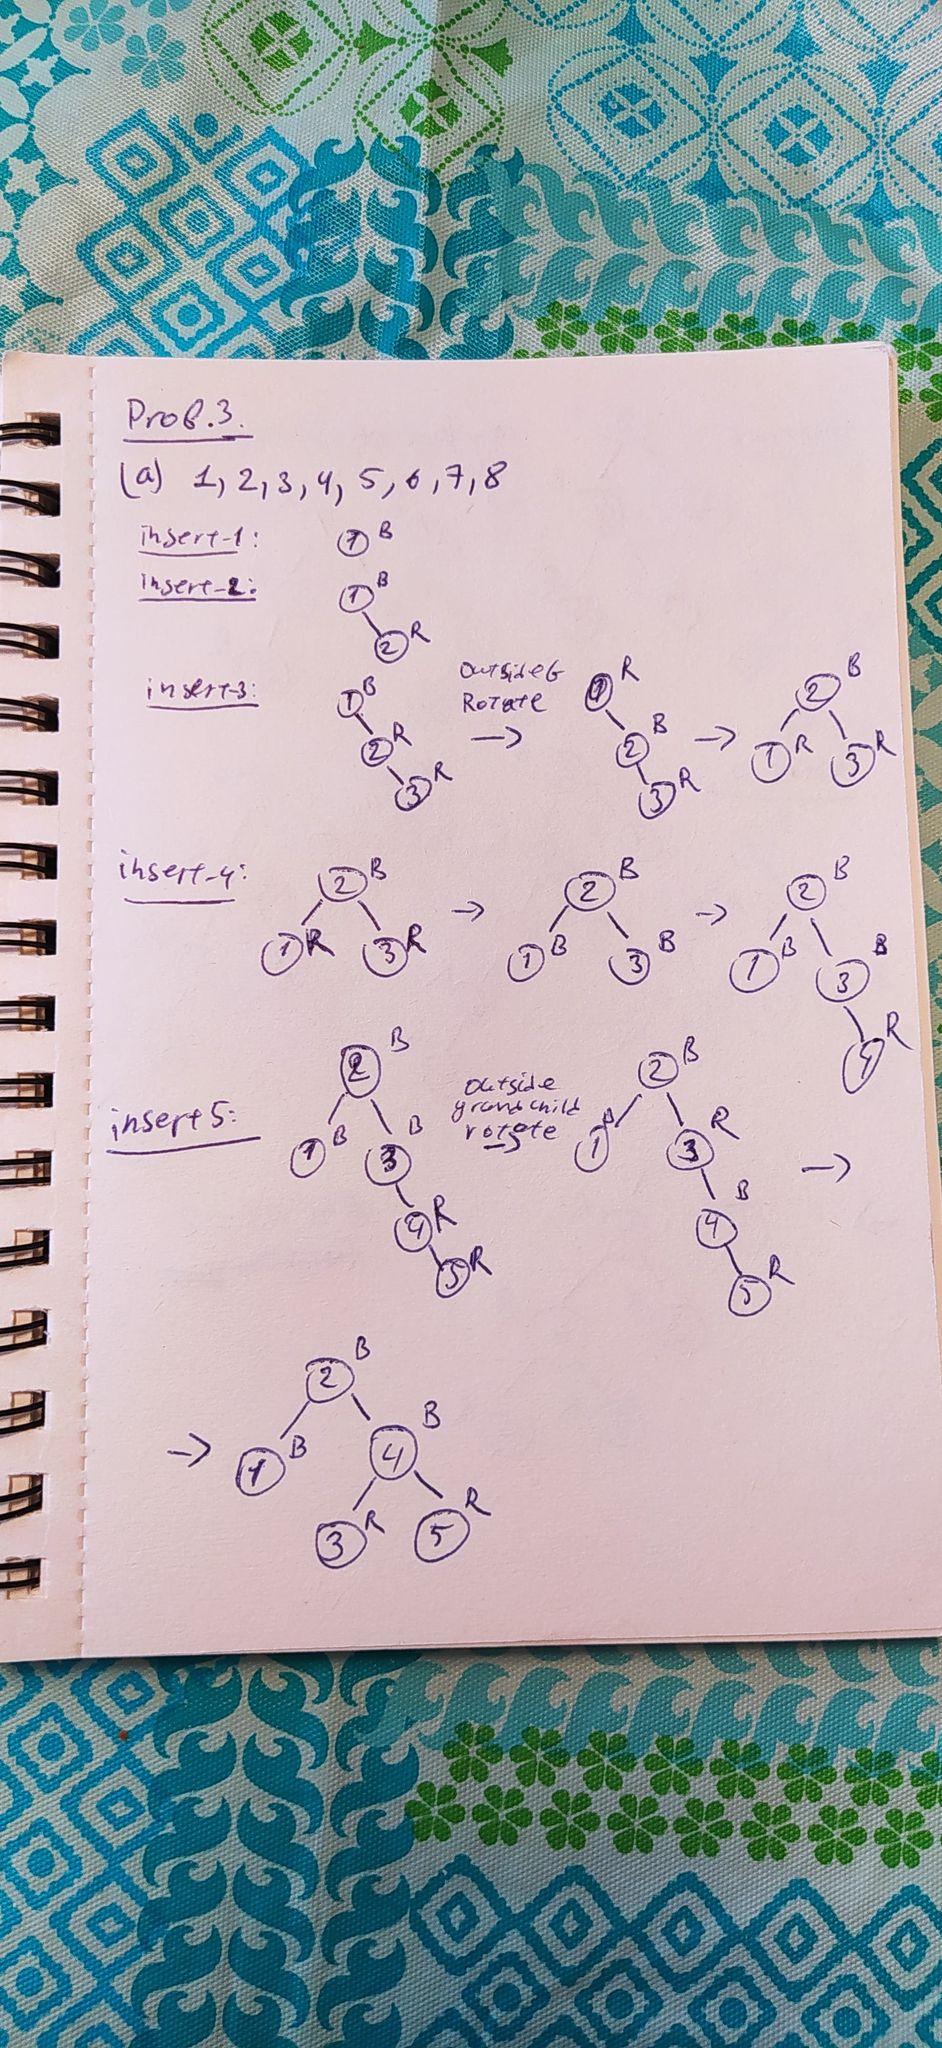 Prob.3.
(a) 1, 2, 3, 4, 5, 6, 7, 8
insert-1: 1 B
insert-2: 1 B
2 R
insert-3: 1 B
2 R
3 R
Outside G
Rotate
→
1 R
2 B
3 R
→
2 B
1 R 3 R
insert-4: 2 B
1 R 3 R
→
2 B
1 B 3 B
→
2 B
1 B 3 B
4 R
insert 5: 2 B
1 B 3 B
4 R
5 R
Outside
grandchild
rotate
→
2 B
1 B 3 R
4 B
5 R
→
→
2 B
1 B 4 B
3 R 5 R